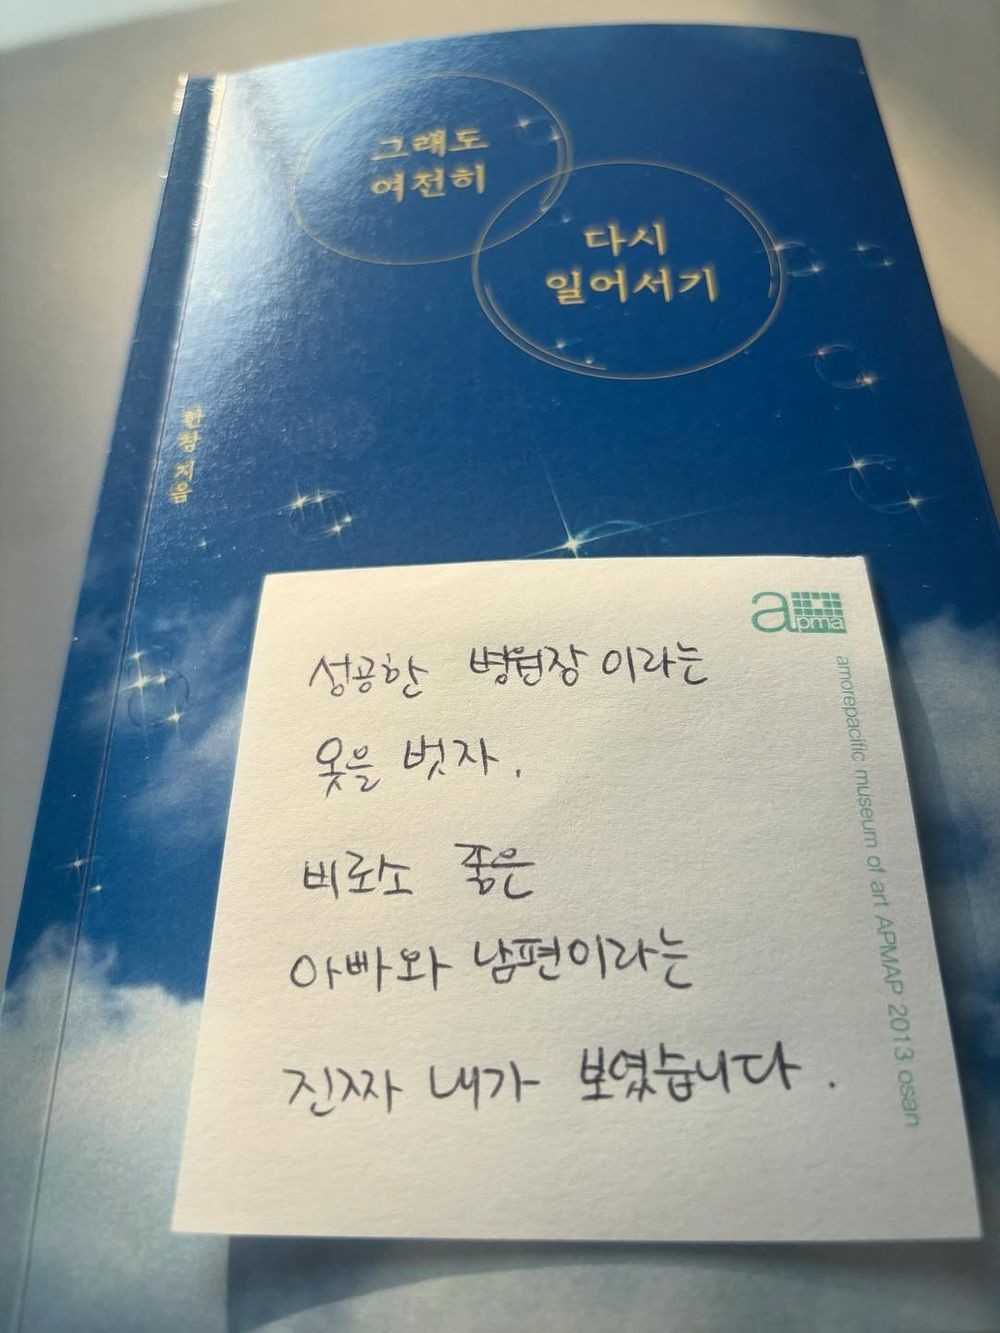 그래도
여전히
다시
일어서기
한창 지음
apma
amorepacific museum of art APMAP 2013 osan
성공한 병원장이라는
옷을 벗자.
비로소 좋은
아빠와 남편이라는
진짜 내가 보였습니다.